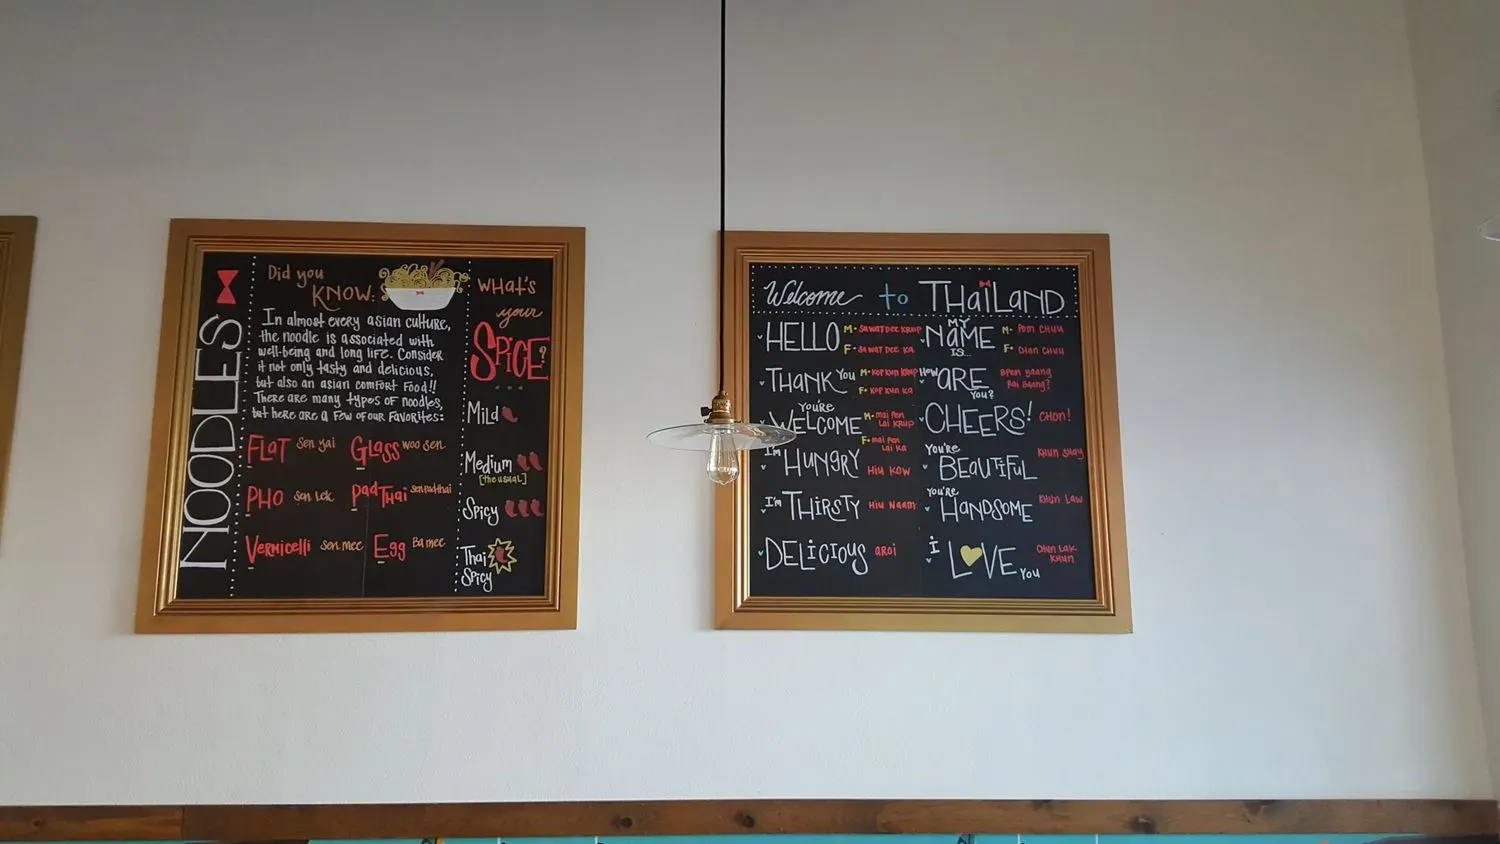 NOODLES
Did you
KNOW:
In almost every asian culture,
the noodle is associated with
well-being and long life. Consider
it not only tasty and delicious,
but also an asian comfort food!!
There are many types of noodles,
but here are a few of our favorites:
FLAT sen yai
GLASS woo sen
PHO sen lek
Pad THai sen pad thai
Vermicelli sen mee
Egg Ba mee
WHAT'S
your
SPICE?
Mild
Medium
[the usual]
Spicy
Thai
Spicy
Welcome to THAILAND
HELLO M- SAWAT DEE KRUP
F- SAWAT DEE KA
THANK YOU M- KOP KUN KRUP
F- KOP KUN KA
YOU'RE
WELCOME M- mai pen
Lai KRUP
F- mai pen
Lai Ka
I'm
HUNGRY HIU KOW
I'm THIRSTY HIU NAAM
DELICIOUS AROI
MY
NAME
IS...
M- POM CHUU
F- CHAN CHUU
HOW ARE
YOU?
BPEN YAANG
RAI BAANG?
CHEERS! CHON!
YOU'RE
BEAUTIFUL
KHUN SUAY
YOU'RE
HANDSOME
KHUN LAW
I
LOVE YOU
CHAN LAK
KHUN